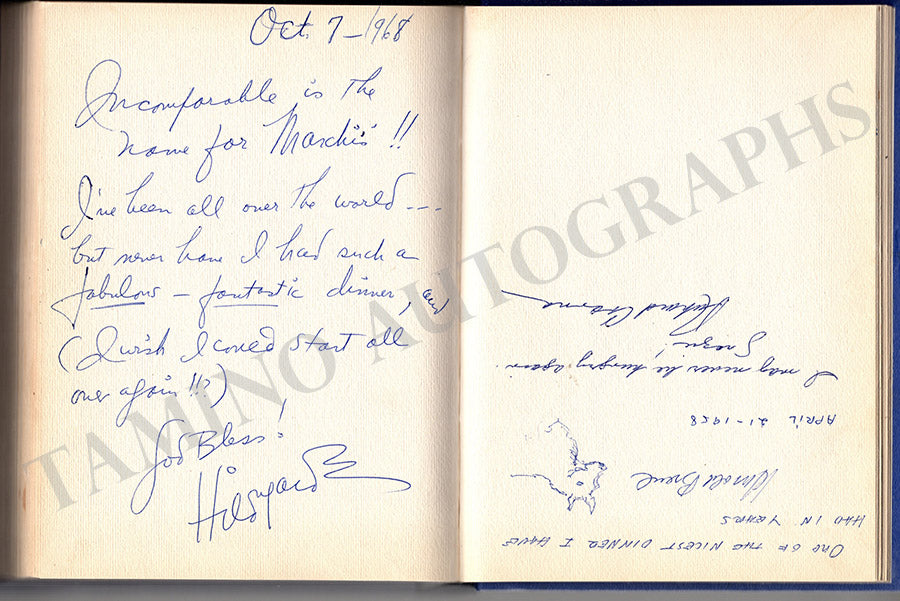 Oct. 7 - 1968
Incomparable is the
name for Marchi's!!
I've been all over the world ---
but never have I had such a
fabulous - fantastic dinner, and
(I wish I could start all
over again!!?)
God Bless!
Hildegarde
ONE OF THE NICEST DINNER I HAVE
HAD IN YEARS
APRIL 21-1958
I may never be hungry again.
Richard
TAMINO AUTOGRAPHS